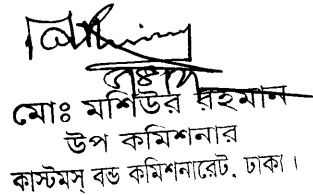 মোঃ মশিউর রহমান
উপ কমিশনার
কাস্টমস্ বন্ড কমিশনারেট, ঢাকা।